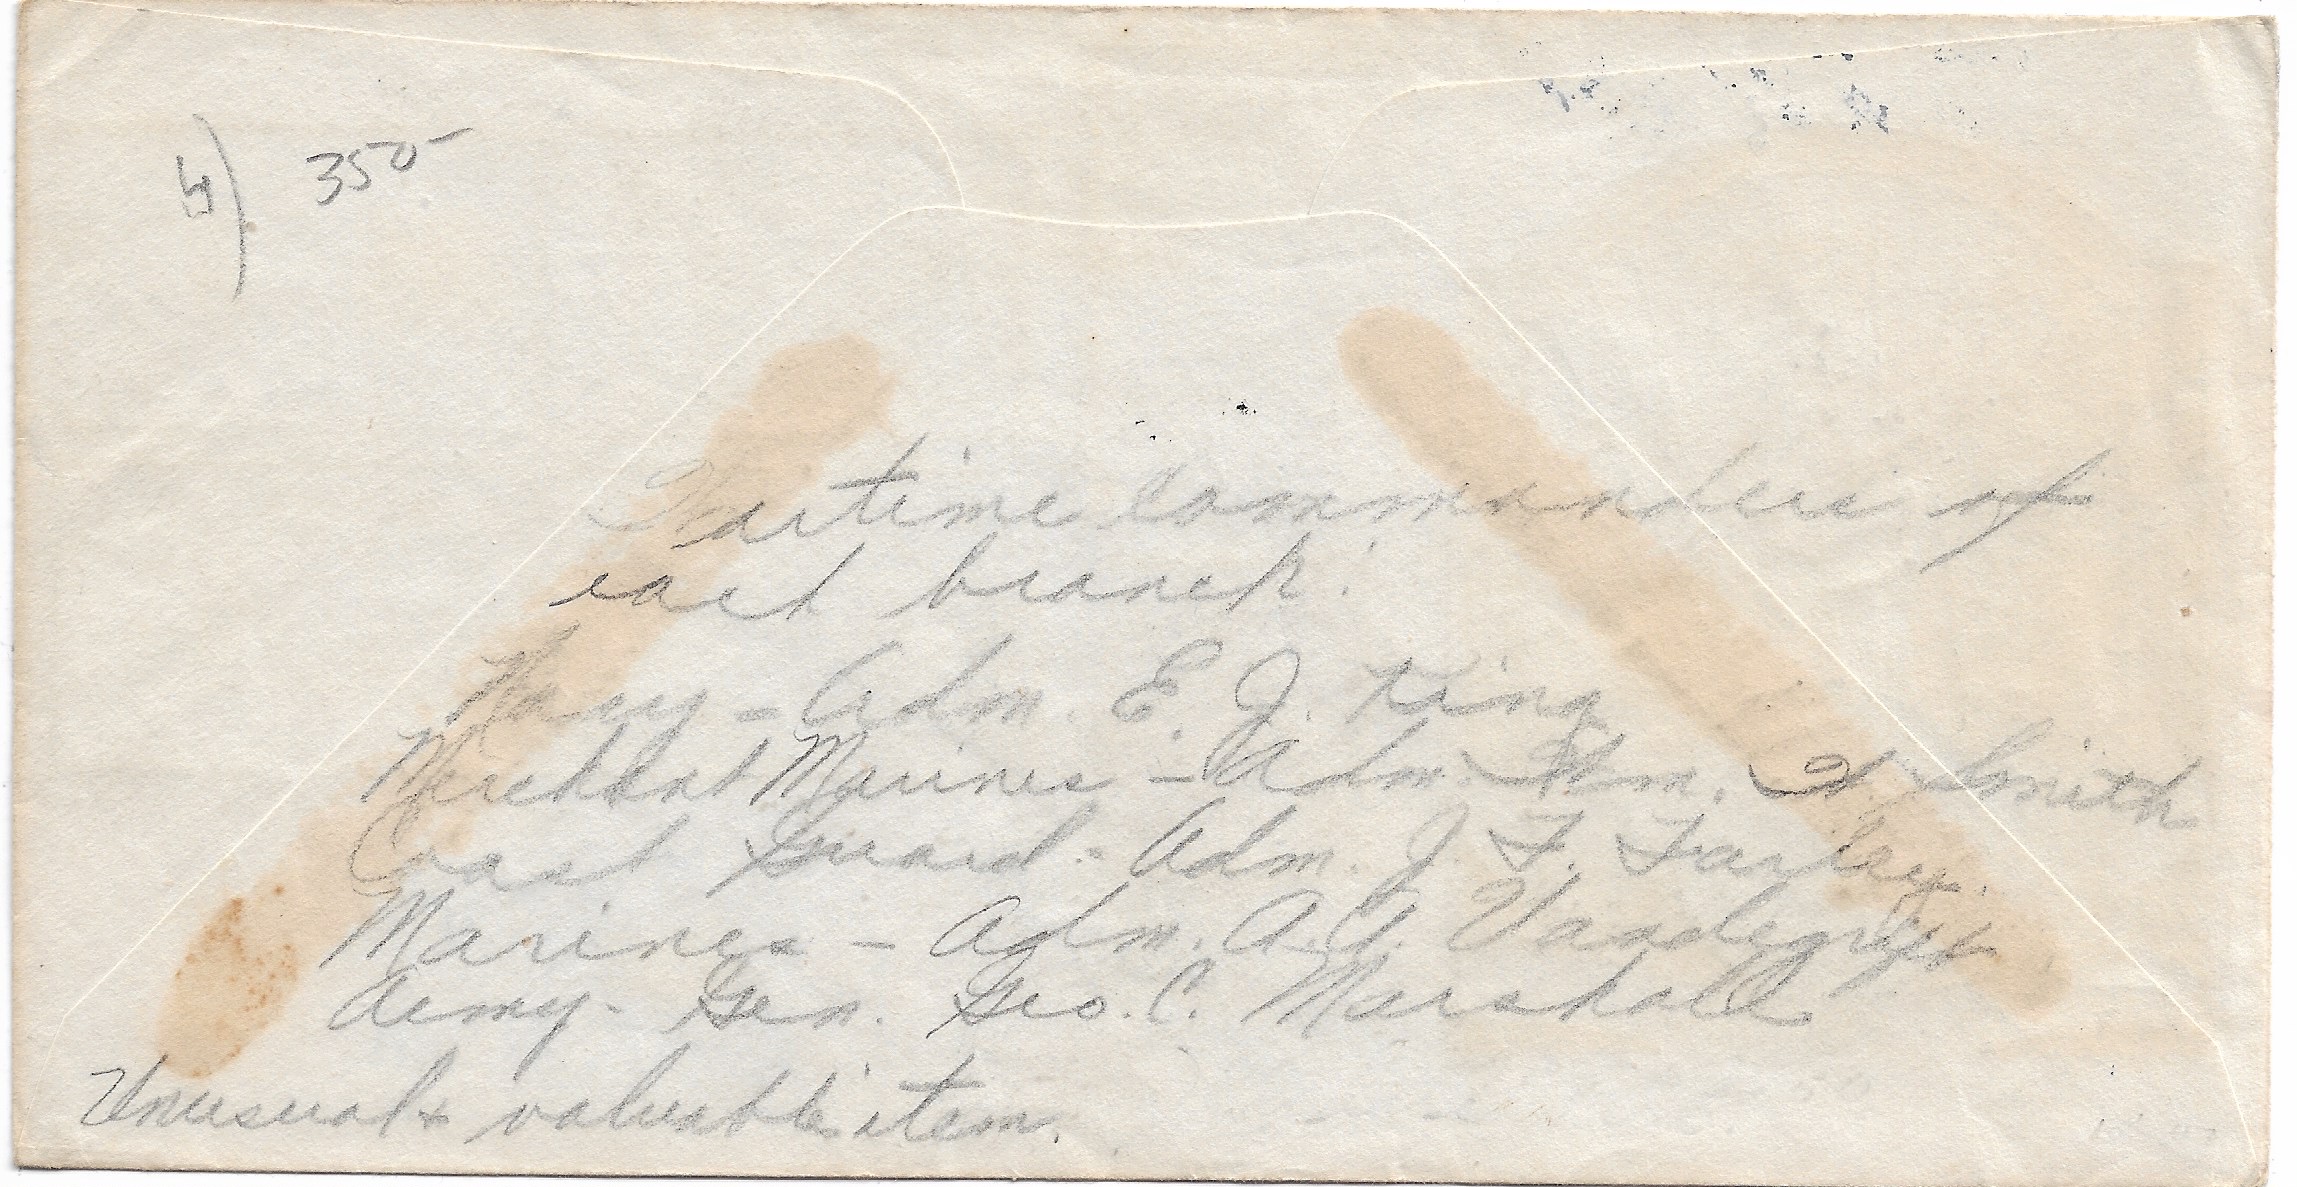 350-
Wartime commanders of
each branch.
Navy - Adm. E. J. King
Merchant Marines - Adm. Wm. W. Smith
Coast Guard - Adm. J. F. Farley.
Marines - Adm. A. A. Vandegrift
Army - Gen. Geo. C. Marshall
Unusual & valuable item.